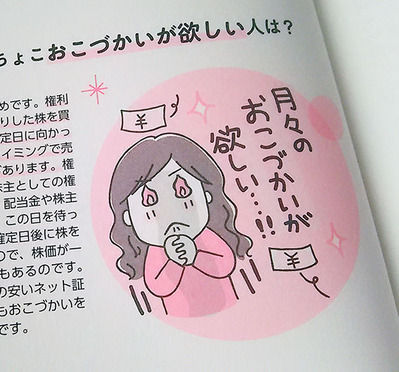 ちょこおこづかいが欲しい人は?
めです。権利
りした株を買
定日に向かっ
イミングで売
があります。権
株主としての権
配当金や株主
この日を待っ
確定日後に株を
ので、株価が一
もあるのです。
の安いネット証
もおこづかいを
です。
¥
月々の
おこづかいが
欲しい…!!
¥